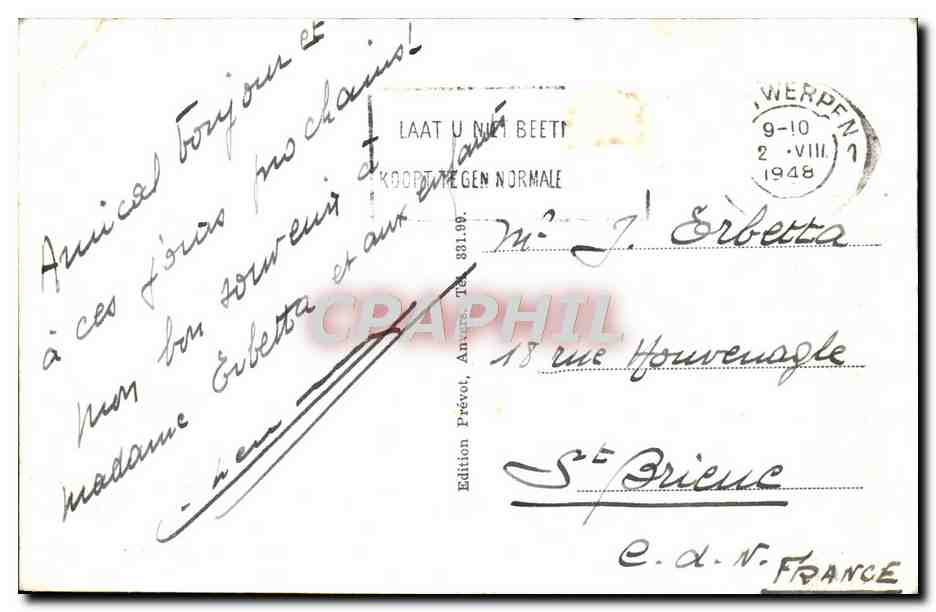 Amical bonjour et
à ces jours prochains!
mon bon souvenir à
madame Erbetta et aux enfants
LAAT U NIET BEETN
KOOPT TEGEN NORMALE
WERPEN 1
9-10
2 .VIII
1948
Mr J. Erbetta
18 rue Houvenagle
St Brieuc
C.d.N. FRANCE
Edition Prévot, Anvers. Tél. 331.99.
CPAPHIL